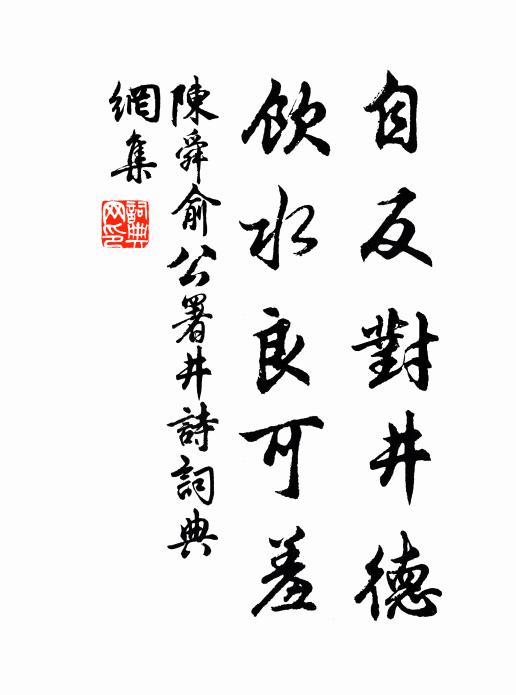 自反對井德
飲水良可羞
陳舜俞公署井詩詞典
網集
詞典
网印